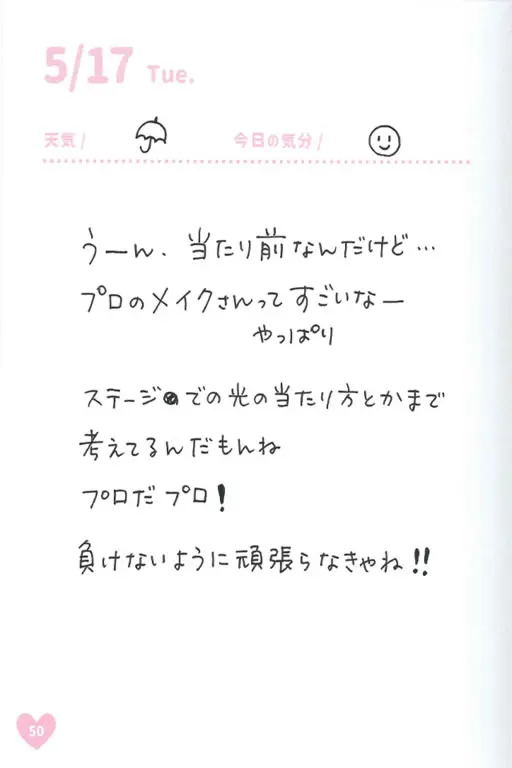 5/17 Tue.
天気 / 今日の気分 /
うーん、当たり前なんだけど…
プロのメイクさんってすごいなー
やっぱり
ステージでの光の当たり方とかまで
考えてるんだもんね
プロだプロ!
負けないように頑張らなきゃね!!
50